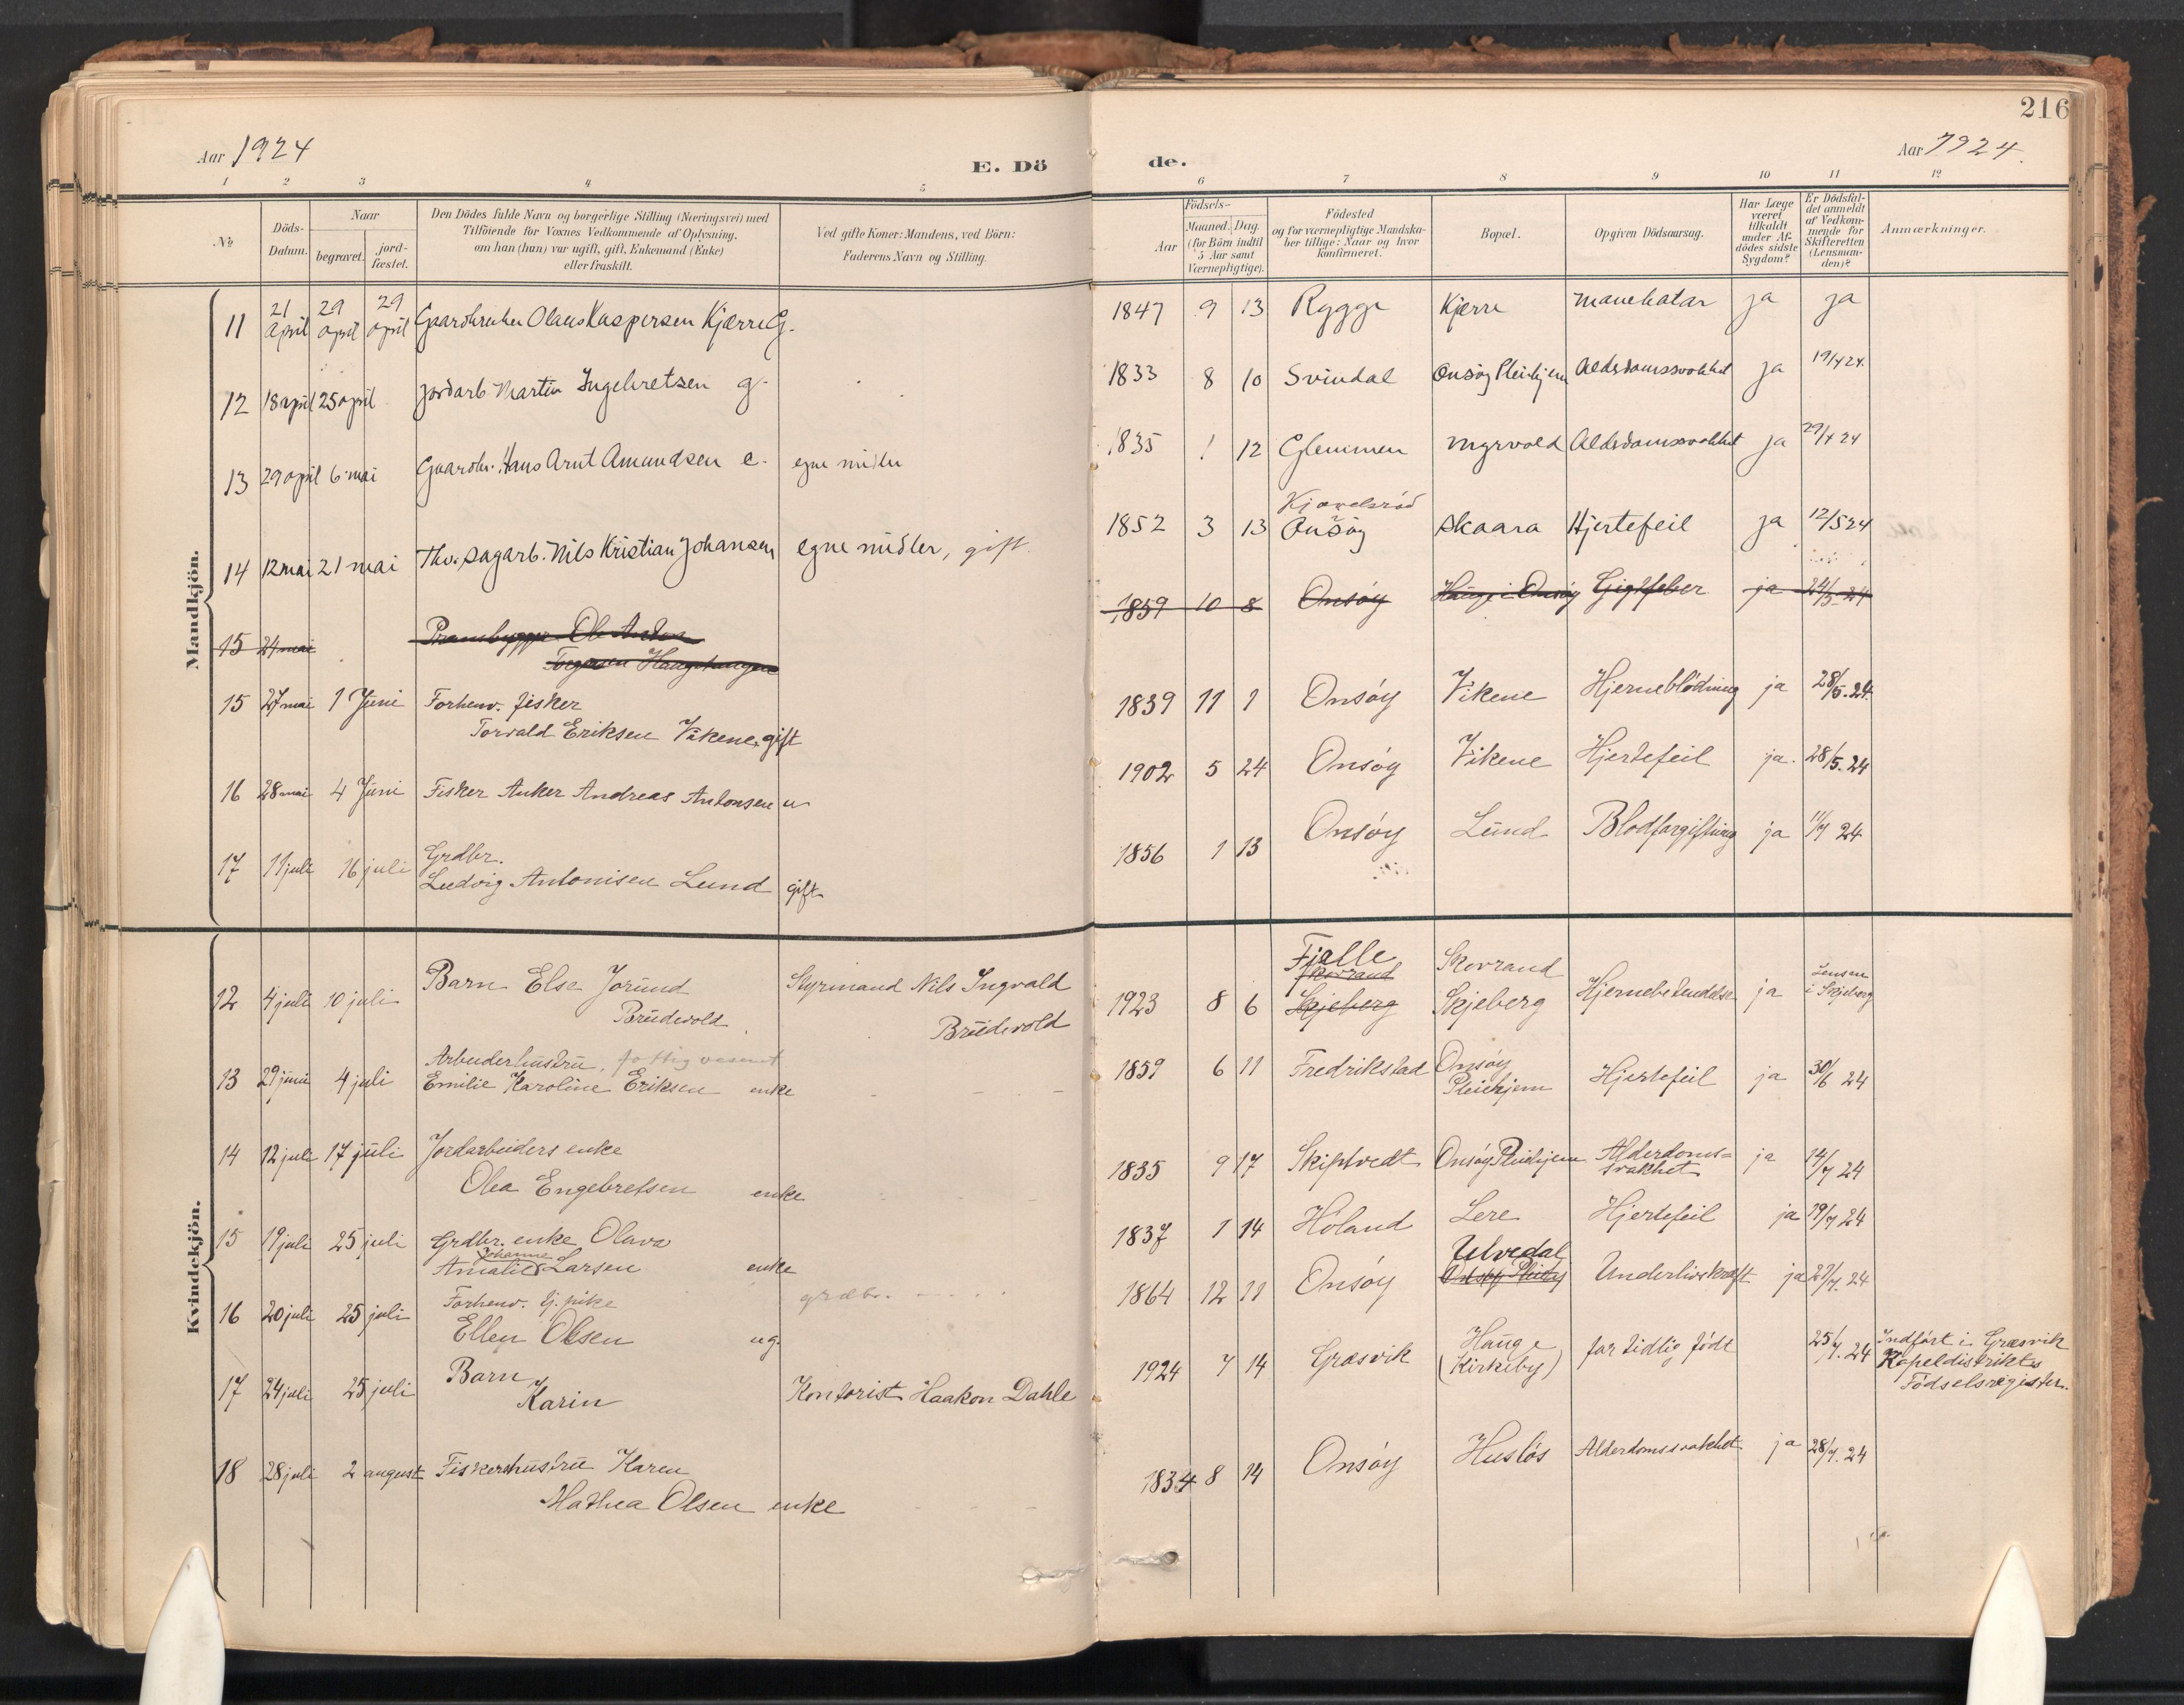 216
Aar 1924
E. Dö
de.
Aar 1924.
1 2 3 4 5 6 7 8 9 10 11 12
№
Döds-
Datum.
Naar
begravet.
jord-
fæstet.
Den Dödes fulde Navn og borgerlige Stilling (Næringsvei) med
Tilföiende for Voxnes Vedkommende af Oplysning,
om han (hun) var ugift, gift, Enkemand (Enke)
eller fraskilt.
Ved gifte Koner: Mandens, ved Börn:
Faderens Navn og Stilling.
Födsels-
Aar
Maaned. Dag.
(for Börn indtil
5 Aar samt
Værnepligtige).
Födested
og for værnepligtige Mandska-
ber tillige: Naar og hvor
konfirmeret.
Bopæl.
Opgiven Dödsaarsag.
Har Læge
været
tilkaldt
under Af-
dödes sidste
Sygdom?
Er Dödsfal-
det anmeldt
af Vedkom-
mende for
Skifteretten
(Lensman-
den)?
Anmærkninger.
Mandkjön.
11 21 april 29 april 29 april Gaardbruker Olaus Kaspersen Kjærre G. 1847 9 13 Rygge Kjærre ja ja
12 18 april 25 april Jordarb. Martin Ingebretsen g. 1833 8 10 Svindal Onsöy Pleiehjem Alderdomssvakhet ja 19/4 24.
13 29 april 6 mai Gaardbr. Hans Arnt Amundsen e. egne midler 1835 1 12 Glemmen Myrvold Alderdomssvakhet ja 29/4 24
14 12 mai 21 mai Fhv. sagarb. Nils Kristian Johansen egne midler, gift. 1852 3 13 Kjærelsröd Onsöy Skaara Hjertefeil ja 12/5 24
15 24 mai Prambygger Ole Anton
Torgersen Haugetangen 1859 10 8 Onsöy Hauge i Onsöy Gigtfeber ja 24/5 24
15 27 mai 1 Juni Forhenv. fisker
Torvald Eriksen Vikene, gift 1839 11 1 Onsöy Vikene Hjerneblödning ja 28/5. 24.
16 28 mai 4 Juni Fisker Anker Andreas Antonsen u 1902 5 24 Onsöy Vikene Hjertefeil ja. 28/5. 24
17 11 juli 16 juli Grdbr.
Ludvig Antonisen Lund gift 1856 1 13 Onsöy Lund Blodforgiftning ja 11/7 24
Kvindekjön.
12 4 juli 10 juli Barn Else Jorund
Brudevold Styrmand Nils Ingvald
Brudevold 1923 8 6 Fjelle
Skovrand
Skjeberg Skovrand
Skjeberg Hjernebetendelse ja Lensm.
i Skjeberg
13 29 juni 4 juli Arbeiderhustru, fattigvesenet
Emilie Karoline Eriksen enke 1859 6 11 Fredrikstad Onsöy
Pleiehjem Hjertefeil ja 30/6 24
14 12 juli 17 juli Jordarbeiders enke
Olea Engebretsen enke 1835 9 17 Skiptvedt Onsöy Pleiehjem Alderdoms-
svakhet ja 14/7 24
15 19 juli 25 juli Grdbr. enke Olava
Johanne
Amalie Larsen enke 1837 1 14 Höland Lere Hjertefeil ja 19/7 24
16 20 juli 25 juli Forhenv. tj. pike
Ellen Olsen ug. grdbr. 1864 12 11 Onsöy Ulvedal
Onsöy Pleiehj Underlivskræft ja 27/7. 24
17 24 juli 25 juli Barn
Karin Kontorist Haakon Dahle 1924 7 14 Græsvik Hauge
(Kirkeby) for tidlig födt 25/7. 24 Indfört i Græsvik
Kapeldistrikts
Födselsregister.
18 28 juli 2 august Fiskerhustru Karen
Mathea Olsen enke 1834 8 14 Onsöy Huslös Alderdomssvakhet ja 28/7. 24